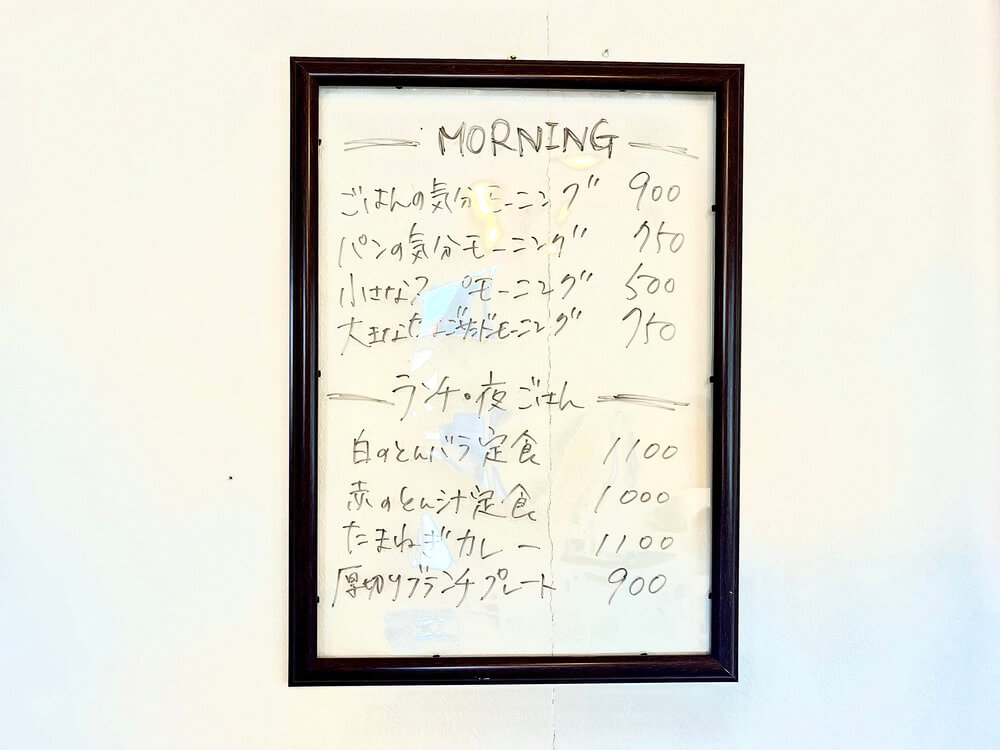 MORNING
ごはんの気分モーニング 900
パンの気分モーニング 750
小さな モーニング 500
大きな モーニング 750
ランチ・夜ごはん
白のとんバラ定食 1100
赤のとん汁定食 1000
たまねぎカレー 1100
厚切りブランチプレート 900